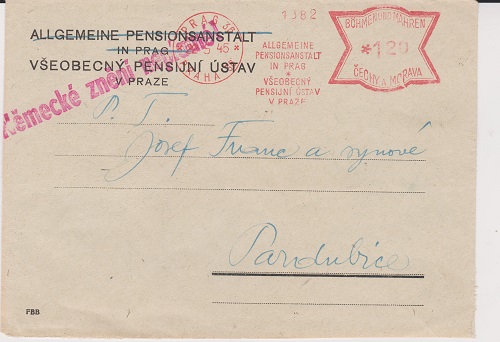 ALLGEMEINE PENSIONSANSTALT
IN PRAG
VŠEOBECNÝ PENSIJNÍ ÚSTAV
V PRAZE
Německé znění
PRAG
45
PRAHA
1382
ALLGEMEINE
PENSIONSANSTALT
IN PRAG
*
VŠEOBECNÝ
PENSIJNÍ ÚSTAV
V PRAZE
BÖHMEN UND MÄHREN
*120
ČECHY A MORAVA
P. T.
Josef Franc a synové
Pardubice
FBB